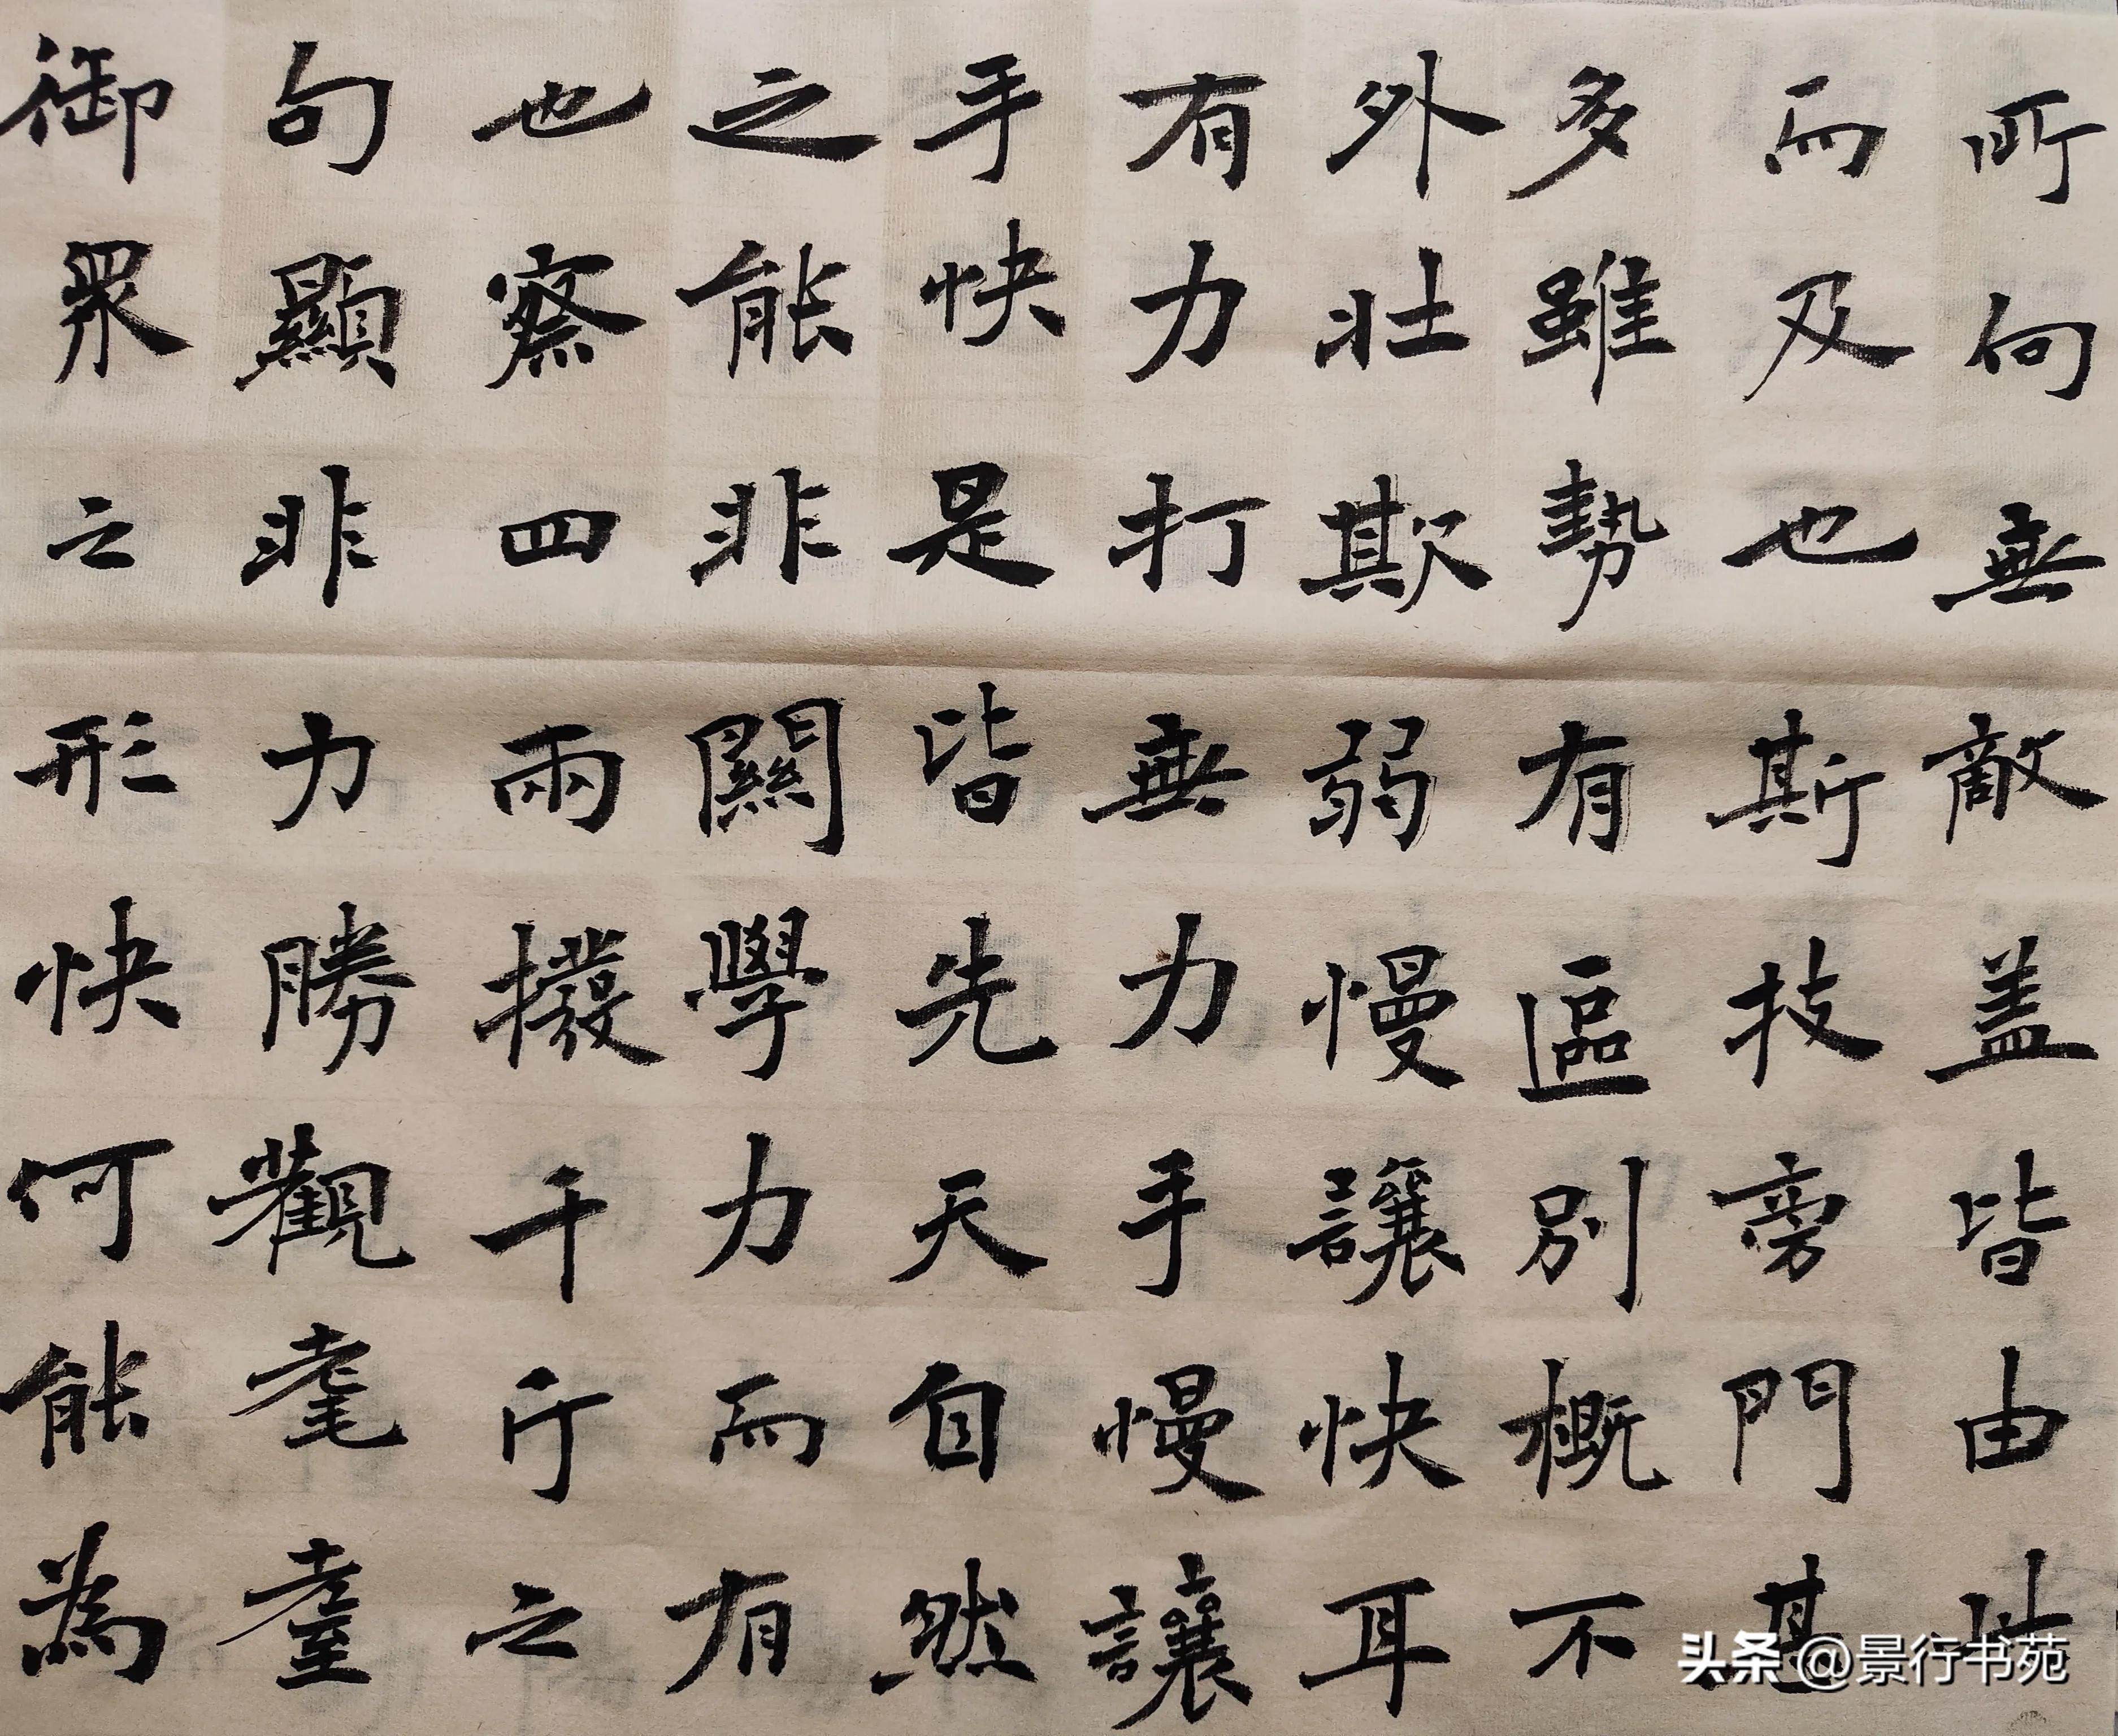 所向無敵盖皆由此
而及也斯技旁門甚
多雖勢有區別概不
外壯欺弱慢讓快耳
有力打無力手慢讓
手快是皆先天自然
之能非關學力而有
也察四兩撥千斤之
句顯非力勝觀耄耋
御眾之形快何能為
头条@景行书苑